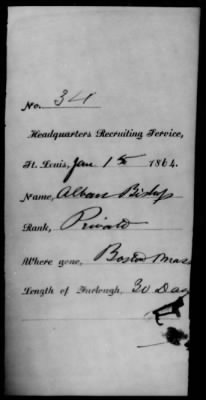 No. 34
Headquarters Recruiting Service,
St. Louis, Jan 18 1864.
Name, Alban Bishop
Rank, Private
Where gone, Boston Mass
Length of Furlough, 30 Day